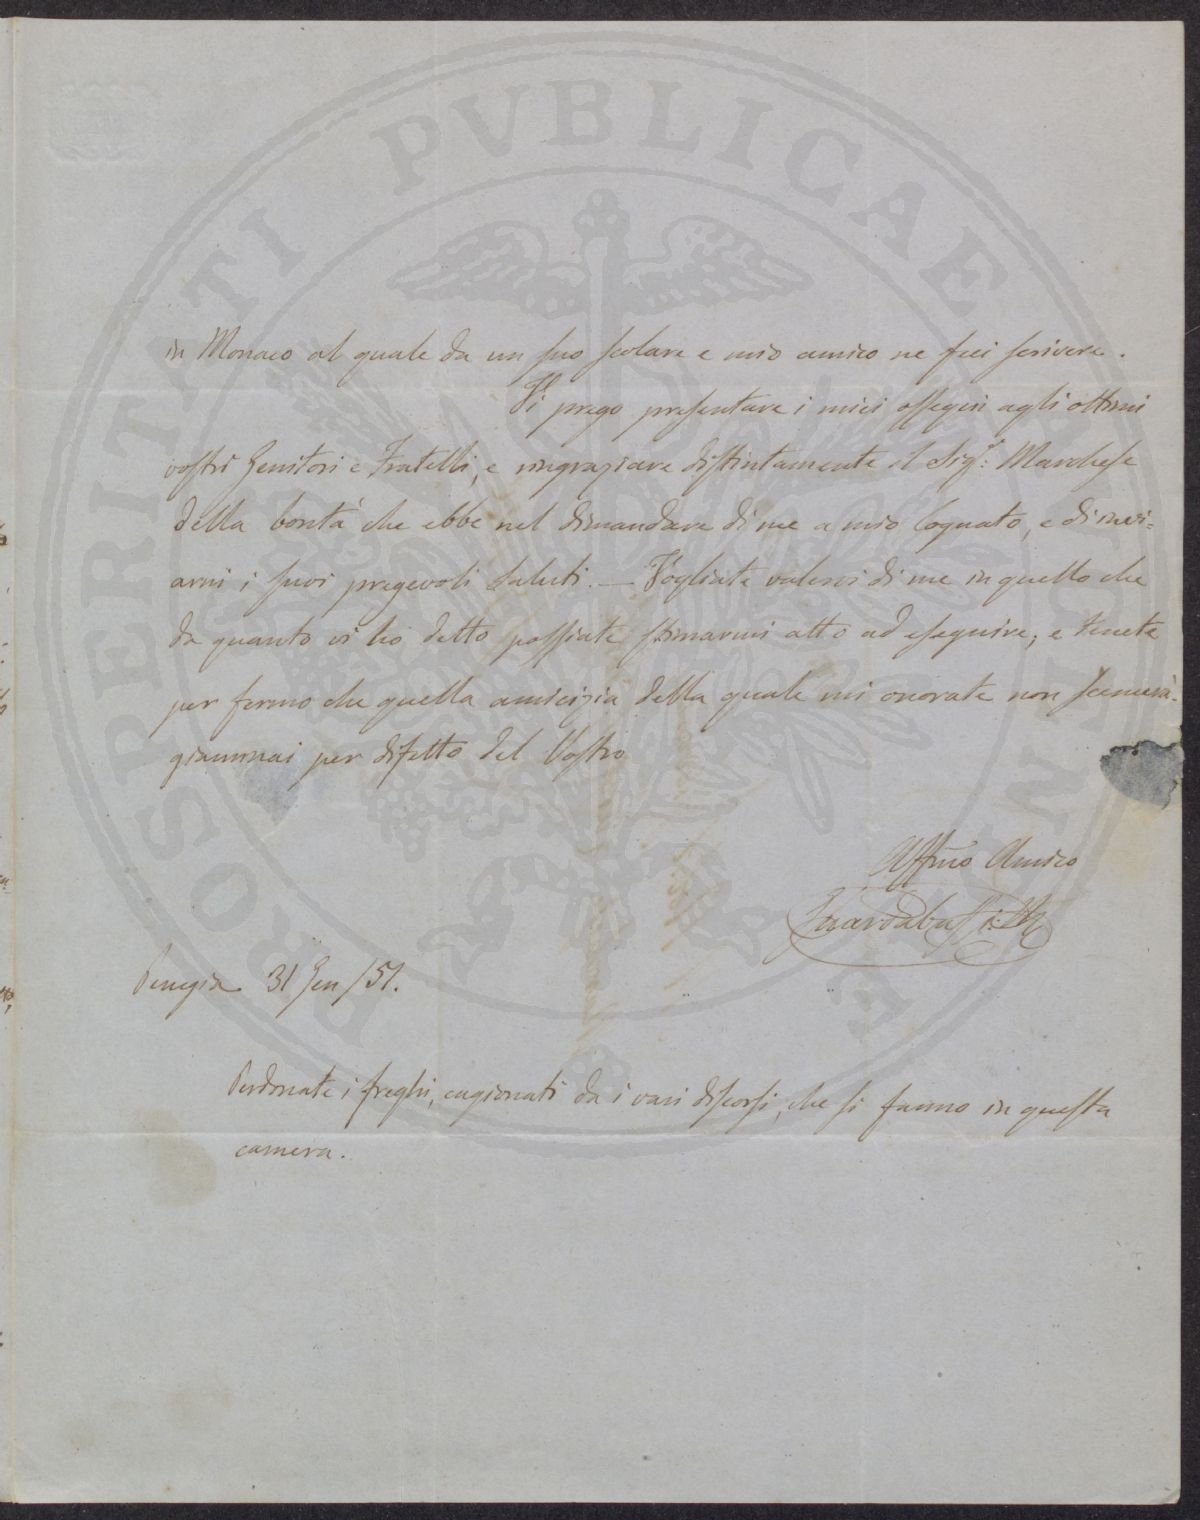 in Monaco al quale da un suo scolare e mio amico ne feci scrivere.
Vi prego presentare i miei ossequi agli ottimi
vostri Genitori e Fratelli, e ringraziare distintamente il Sigr: Marchese
della bontà che ebbe nel dimandare di me a mio Cognato, e di invi=
armi i suoi pregevoli saluti. — Vogliate valervi di me in quello che
da quanto vi ho detto possiate stimarmi atto ad eseguire; e tenete
per fermo che quella amicizia della quale mi onorate non scemerà
giammai per difetto del Vostro
Affmo Amico
Guardabassi
Perugia 31 Gen/51.
Perdonate i freghi, cagionati da i vari discorsi, che si fanno in questa
camera.
PROSPERITATI PVBLICAE